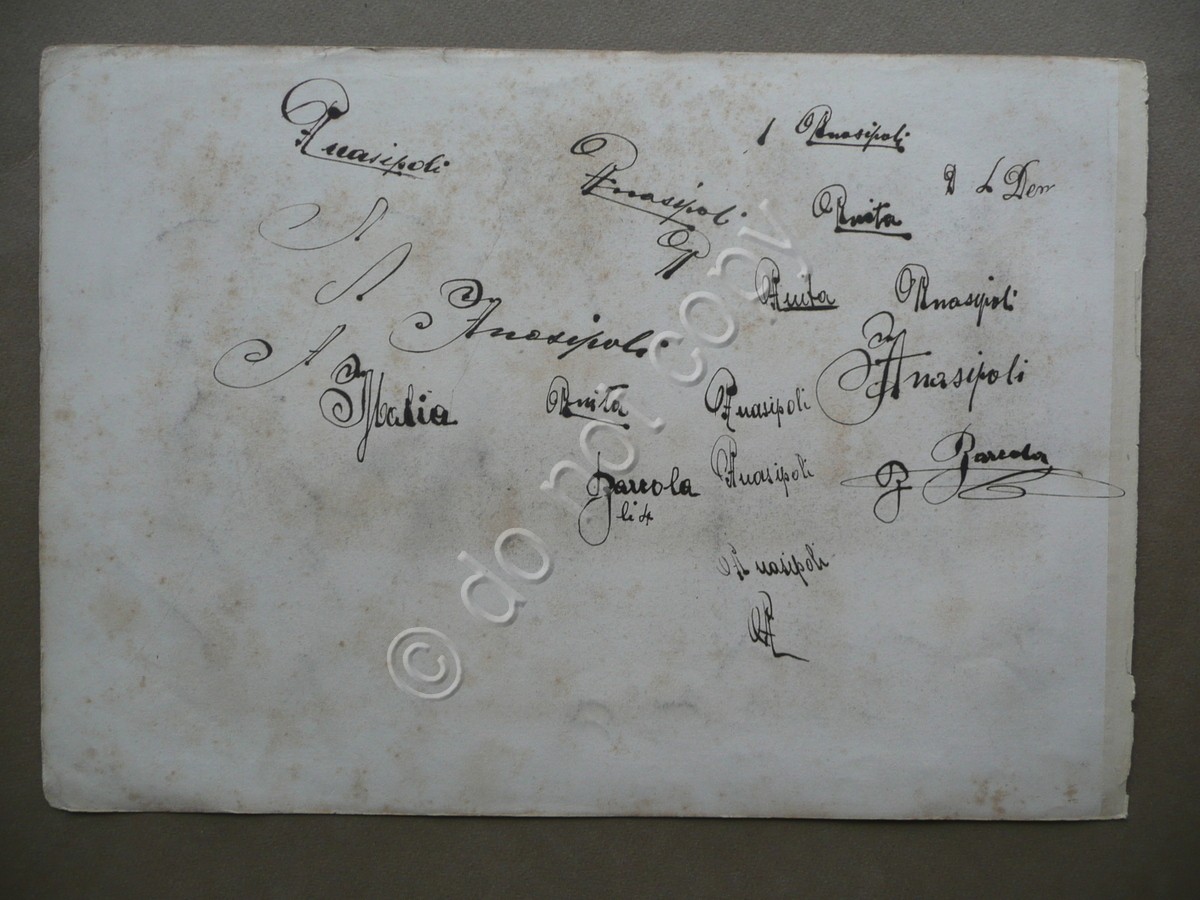 Anasipoli
1 Anasipoli
Anasipoli
2 L Den
Anita
A
A
A
Anita
Anasipoli
A
Anasipoli
Anasipoli
A
Italia
Anita
Anasipoli
Barcola
Anasipoli
B
Barcola
li 4
Anasipoli
A
© do not copy